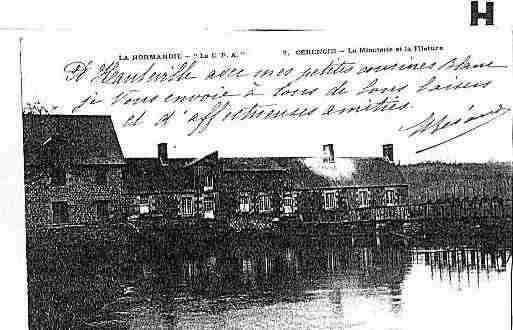 H
LA NORMANDIE - "La C. P. A." 2. CÉRENCES - La Minoterie et la Filature
A Hauteville avec mes petits cousines Blanc
je vous envoie à tous de bons baisers
et d'affectueuses amitiés